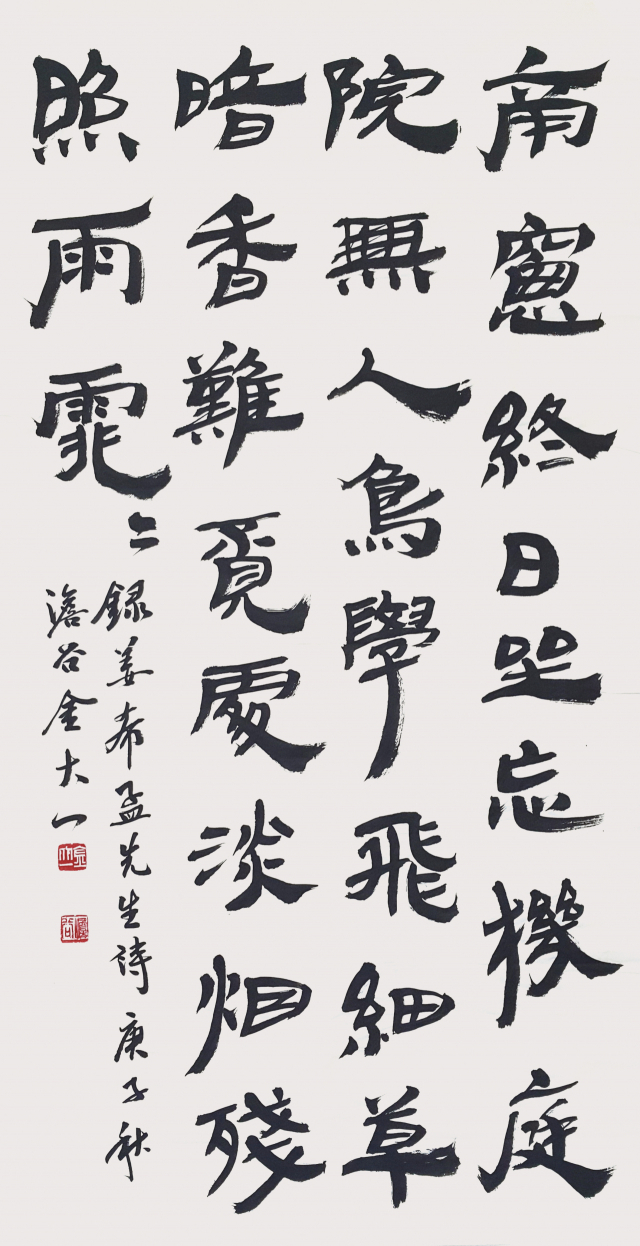 南窻終日坐忘機庭
院無人鳥學飛細草
暗香難覓處淡烟殘
照雨霏〻
録姜希孟先生詩 庚子秋
澹谷金大一